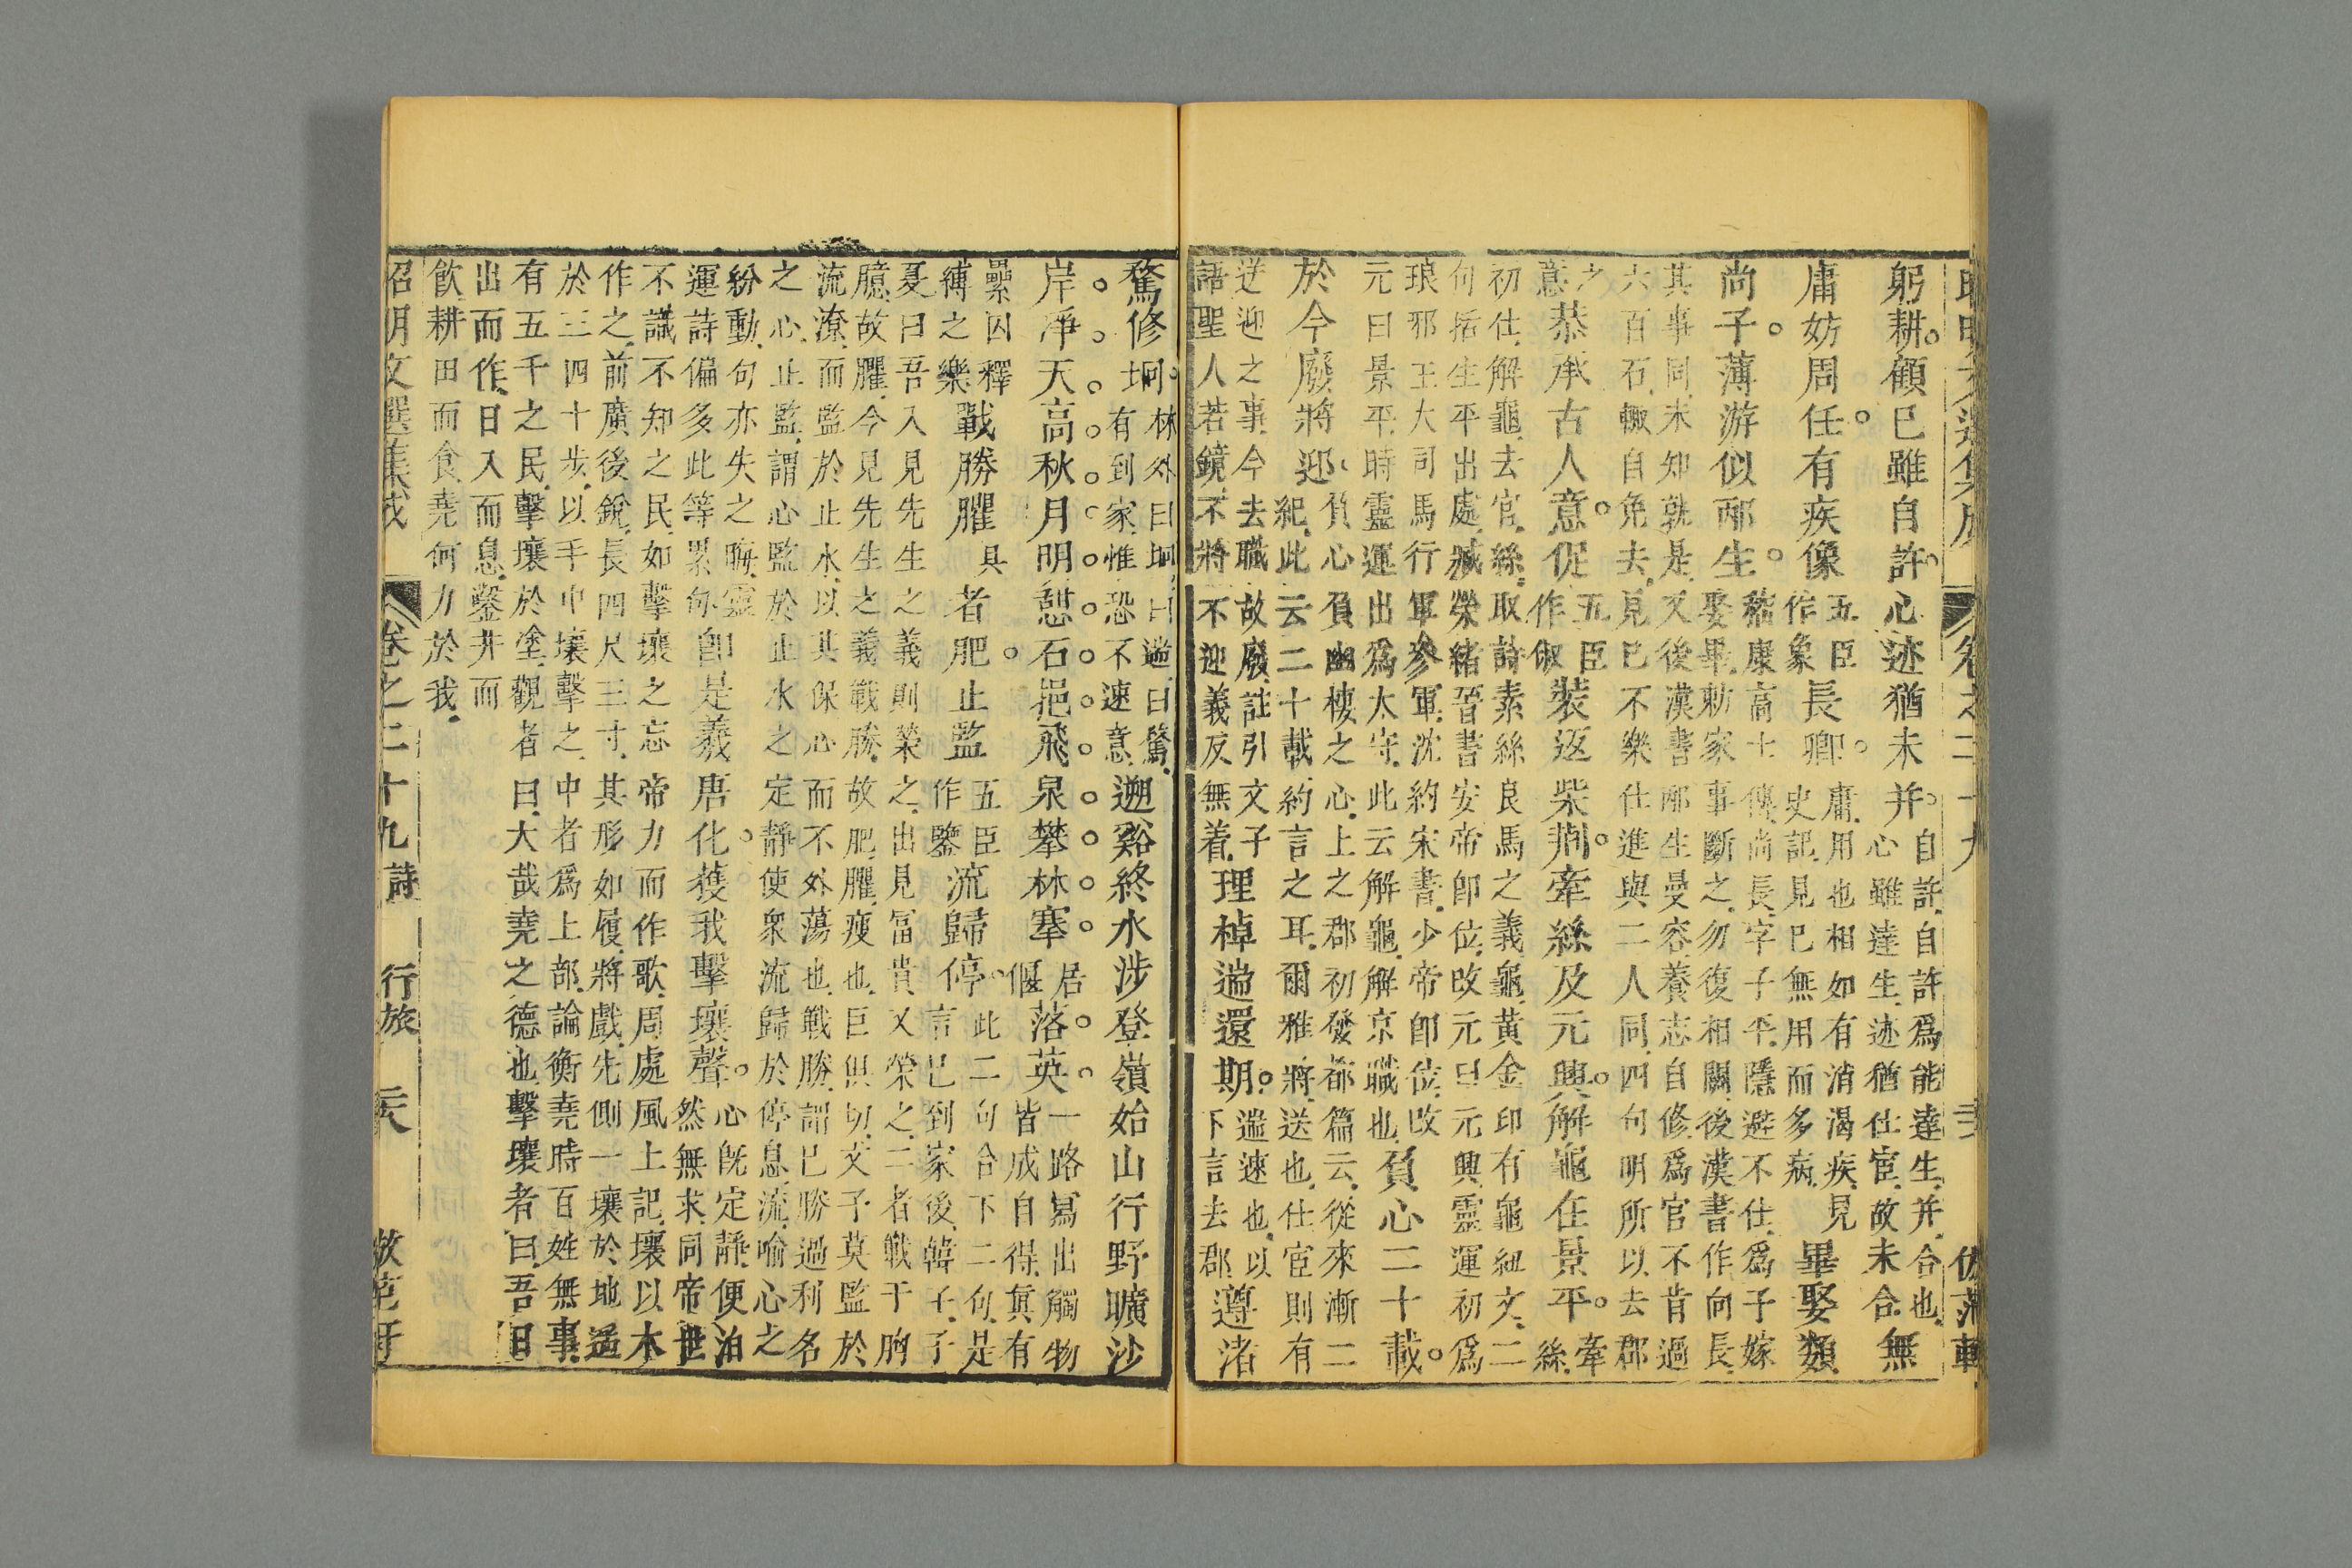 昭明文選集成 卷之二十九 傲范軒
躬耕顧已雖自許心迹猶未并自許自許爲能達生并合也
心雖達生迹猶仕宦故未合無
庸妨周任有疾像五臣作象長卿庸用也相如有消渴疾見
史記見已無用而多病畢娶類
尚子薄游似邴生嵇康高士傳尚長字子平隱避不仕爲子嫁
娶畢勅家事斷之勿復相關後漢書作向長
其事同未知孰是又後漢書邴生曼容養志自修爲官不肯過
六百石輙自免去見已不樂仕進與二人同四句明所以去郡
之意恭承古人意促五臣作俶裝返柴荆牽絲及元興解龜在景平牽絲
初仕解龜去官絲取詩素絲良馬之義龜黃金印有龜紐文二
句括生平出處臧榮緒晉書安帝卽位改元曰元興靈運初爲
琅邪王大司馬行軍參軍沈約宋書少帝卽位改
元曰景平時靈運出爲太守此云解龜解京職也負心二十載
於今廢將迎負心負幽棲之心上之郡初發都篇云從來漸二
紀此云二十載約言之耳爾雅將送也仕宦則有
送迎之事今去職故廢註引文子
語聖人若鏡不將不迎義反無着理棹遄還期遄速也以下言去郡遵渚
騖修坰林外曰坰曰遄曰騖
有到家惟恐不速意遡谿終水涉登嶺始山行野曠沙
岸凈天高秋月明憩石挹飛泉攀林搴居偃落英一路寫出觸物
皆成自得真有
纍囚釋縛之樂戰勝臞具者肥止監五臣作鑒流歸停此二句合下二句是
言已到家後韓子子
夏曰吾入見先生之義則榮之出見富貴又榮之二者戰于胸
臆故臞今見先生之義戰勝故肥臞瘦也巨俱切文子莫監於
流潦而監於止水以其保心而不外蕩也戰勝謂已勝過利名
之心止監謂心監於止水之定靜使衆流歸於停息流喻心之
紛動句亦失之晦靈
運詩偏多此等累句卽是羲唐化獲我擊壤聲心旣定靜便泊
然無求同帝世
不識不知之民如擊壤之忘帝力而作歌周處風土記壤以木
作之前廣後銳長四尺三寸其形如履將戲先側一壤於地遥
於三四十步以手中壤擊之中者爲上部論衡堯時百姓無事
有五千之民擊壤於塗觀者曰大哉堯之德也擊壤者曰吾日
出而作日入而息鑿井而
飲耕田而食堯何力於我
昭明文選集成 卷之二十九詩 行旅 傲范軒